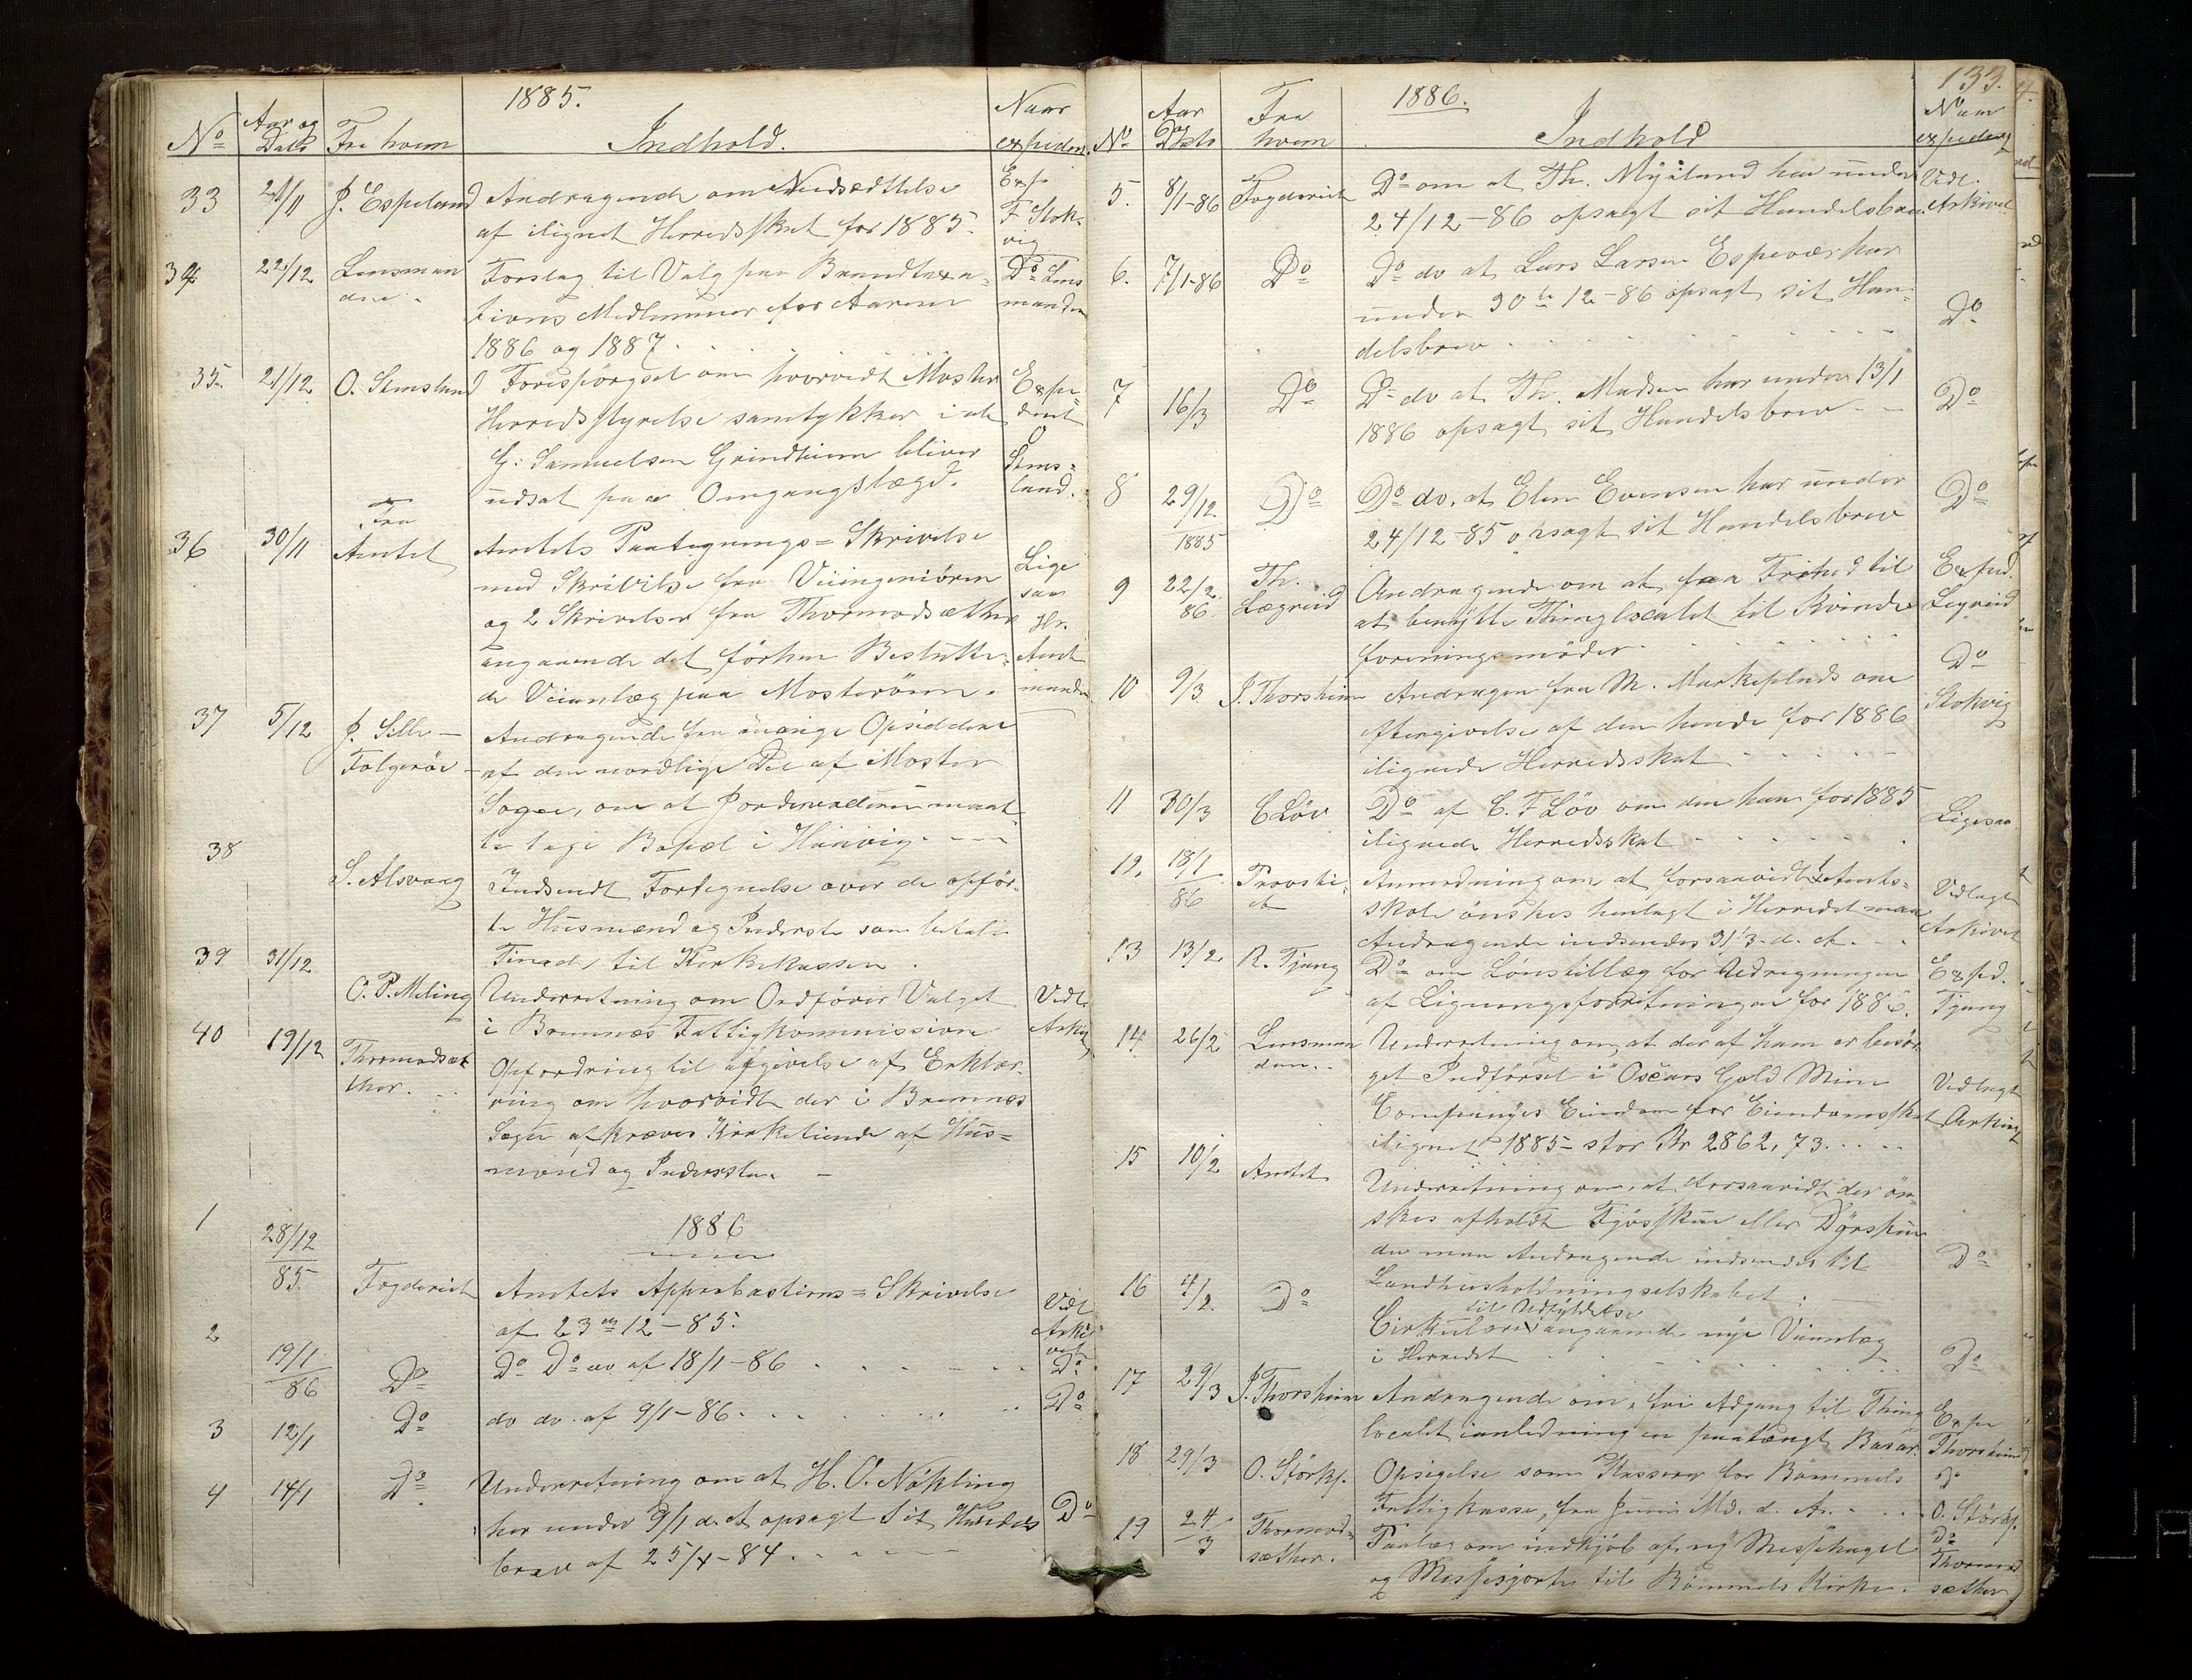 1885.
No Aar og Dato Fra hvem Indhold. Naar expedert.
33 21/11 J. Espeland Andragende om Nedsættelse Exp.
af ilignet Herredsskat for 1885. F. Stok-
vig
34 22/12 Lensman Forslag til Valg paa Brandtaxa- Do Lens
den. tions Medlemmer for Aarene manden
1886 og 1887
35. 21/12 O. Stemsland Forespörgsel om hvorvidt Moster Expe-
Herredsstyrelse samtykker i at dert
G. Samuelsen Grindheim bliver O Stems-
udsat paa Omgangslægd. land.
36 30/11 Fra
Amtet Amtets Paategnings-Skrivelse
med Skrivelse fra Veiingeniören Lige
og 2 Skrivelser fra Thormodsæther saa
angaaende det förhen Beslutte- Hr. Amt
de Veianlæg paa Mosteröen. manden
37 5/12 J. Sille- Andragende fra Opsiddere
Folgeröe af den nordlige Del af Moster
Sogn, om at Jordemoderen maat-
te tage Bopæl i
38 S. Alsvaag Indsendt Fortegnelse over de opför-
te Husmænd og Inderste som betale
Tiende til Kirkekassen.
39 31/12 O. P. Meling Underretning om Ordförer Valget Vedl.
i Bremnes Fattigkommission Arkiv
40 19/12 Thormodsæ-
ther. Opfordring til afgivelse af Erklæ-
ring om hvorvidt der i Bremnes
Sogn afkræves Kirketiende af Hus-
mænd og Inderster. -
1886
1 28/12 85. Fogderiet Amtets Approbations-Skrivelse Vedl
af 23 12-85. Arki-
vet
2 19/1 86 Do Do Do af 18/1-86 Do
3 12/1 Do do do. af 9/1-86. Do
4 14/1 Do Underretning om at H. O. Nökling
har under 9/1 d. A opsagt sit Handels Do
brev af 25/4-84.
133.
1886.
No Aar og Dato Fra hvem Indhold Naar expedert
5. 8/1-86 Fogderiet Do om at Th. Myiland har under Vedl.
24/12-86 opsagt sit Handelsbrev. Arkivet
6. 7/1-86 Do Do do at Lars Larsen Espevær har
under 30te 12-86 opsagt sit Han- Do
delsbrev
7 16/3 Do Do do at Th. Madsen har under 13/1 Do
1886 opsagt sit Handelsbrev
8 29/12 1885 Do Do do. at Elen Evensen har under Do
24/12-85 opsagt sit Handelsbrev
9 22/2 86. Th. Lægreid Andragende om at faa Frihed til Exped.
at benytte Thinglocalet til Kvinde- Legreid
foreningsmöder.
10 9/3 J. Thorsheim Andragen fra M. Markeplads om Do
eftergivelse af den hende for 1886 Stokvig
ilignede Herredsskat
11 30/3 C Löv Do af C. F Löv om den ham for 1885 Ligesaa
ilignede Herredsskat
12. 18/1 86 Provsti-
et Anmodning om at forsaavidt Amts- Vedlagt
skole önskes henlagt i Herredet maa Arkivet
Andragende indsendes 31/3. d. A.
13 13/2 R. Tjong Do om Lönstillæg for Udregningen Exped.
af Ligningsforretningen for 1886. Tjong
14 26/2 Lensman
den. Underretning om, at der af ham er besör-
get Indförsel i Oscars Gold Mine Vedlagt
Companyes Eiendom for Eiendomsskat Arkivet
ilignet 1885 - stor Kr 2862,73.
15 10/2 Amtet Underretning om, at forsaavidt der ön-
skes afholdt Fjösskue eller Dyrskue
der maa Andragende indsendes til Do
Landhusholdningsselskabet
16 4/2. Do Cirkulære til Udfyldelse angaaende nye Veianlæg
i Herredet Do
17 29/3 J. Thorsheim Andragende om, fri Adgang til Thing Expe
localet ianledning en paatængt Basar. Thorsheim
18 29/3 O. Störks. Opsigelse som Kasserer for Bömmels Do
Fattigkasse, fra Juni Md. d. Ar. O. Störks.
19 24/3 Thormod-
sæther. Paalæg om indkjöb af ny Messehagel Do Thormod
og Messesjorte til Bömmels Kirke. sæther